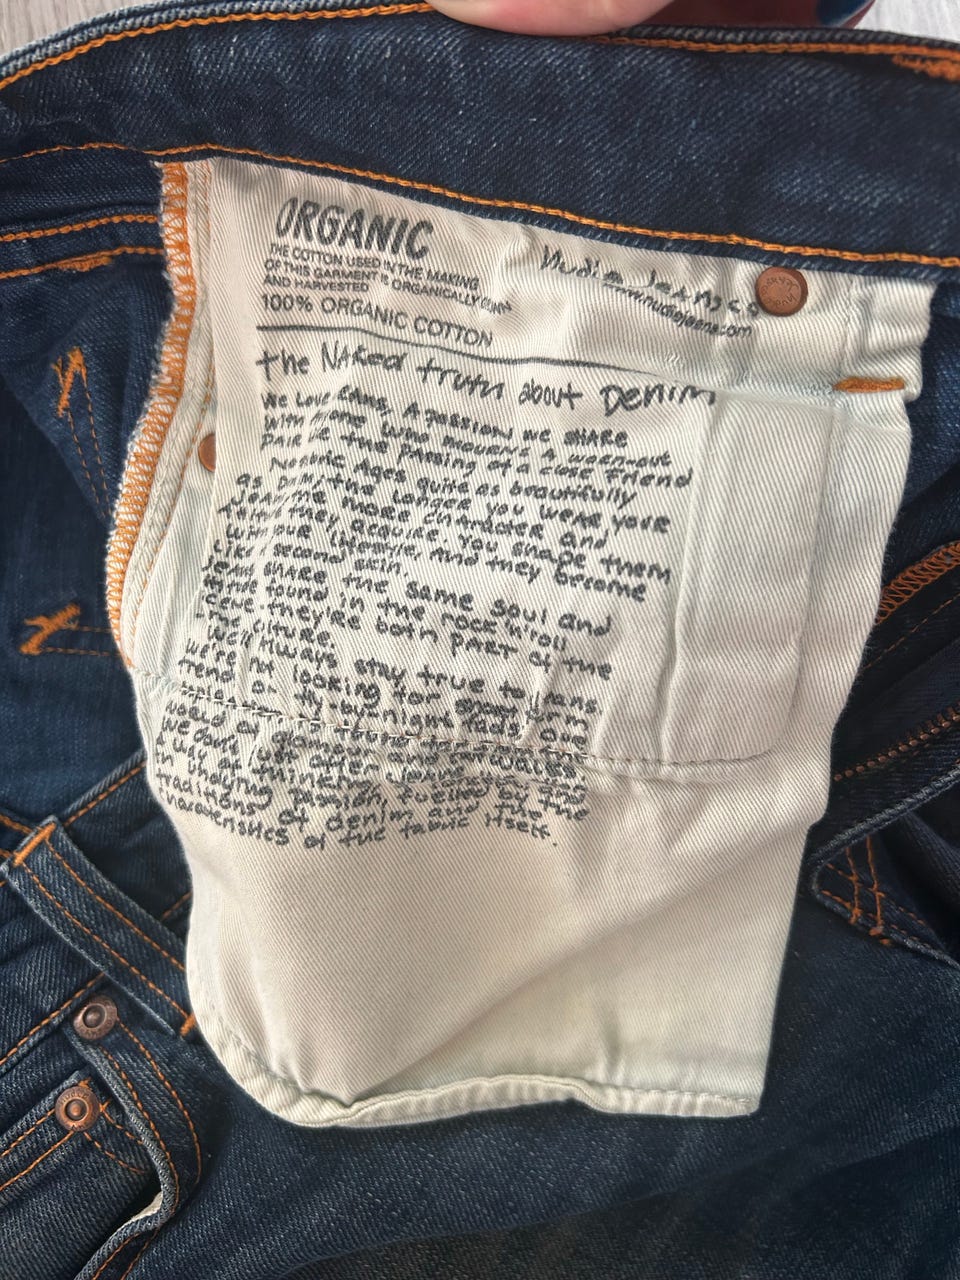 ORGANIC
THE COTTON USED IN THE MAKING
OF THIS GARMENT IS ORGANICALLY
AND HARVESTED
100% ORGANIC COTTON
Nudie Jeans co
www.nudiejeans.com
the Naked truth about Denim
We Love Jeans, A passion we share
With who mourns a worn-out
pair like the passing of a close friend
No fabric Ages quite as beautifully
as Denim. the Longer you wear your
Jeans the more character and
they acquire. you shape them
your lifestyle, And they become
Like second skin.
share the same soul and
found in the rock'n'roll
they're both part of the
culture.
We'll Always stay true to jeans
We're not looking for
or fly-by-night fads. our
world of glamour and catwalks.
We don't often
fashion, fuelled by the
traditions of denim and the
characteristics of the fabric itself.